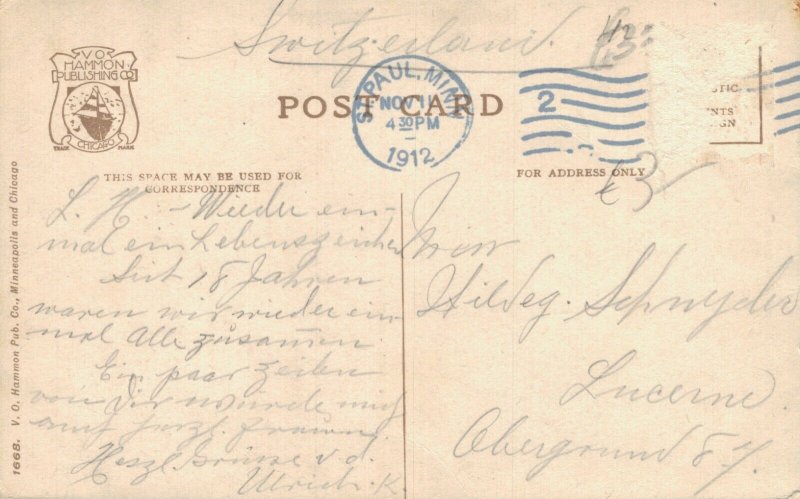 Switzerland.
V O
HAMMON
PUBLISHING CO
CHICAGO
TRADE MARK
POST CARD
ST. PAUL, MINN.
NOV 11
4 30 PM
1912
2
STIC
NTS
GN
THIS SPACE MAY BE USED FOR
CORRESPONDENCE
FOR ADDRESS ONLY
L. H. - Wieder ein-
mal ein Lebenszeichen
Seit 18 Jahren
waren wir wieder ein-
mal Alle zusammen
Ein paar zeilen
von Dir würde mich
auf herzl. freuen.
Herzl. Grüsse v. d.
Ulrich. K.
Miss
Hildeg. Schnyder
Lucerne.
Obergrund 87.
1668. V. O. Hammon Pub. Co., Minneapolis and Chicago